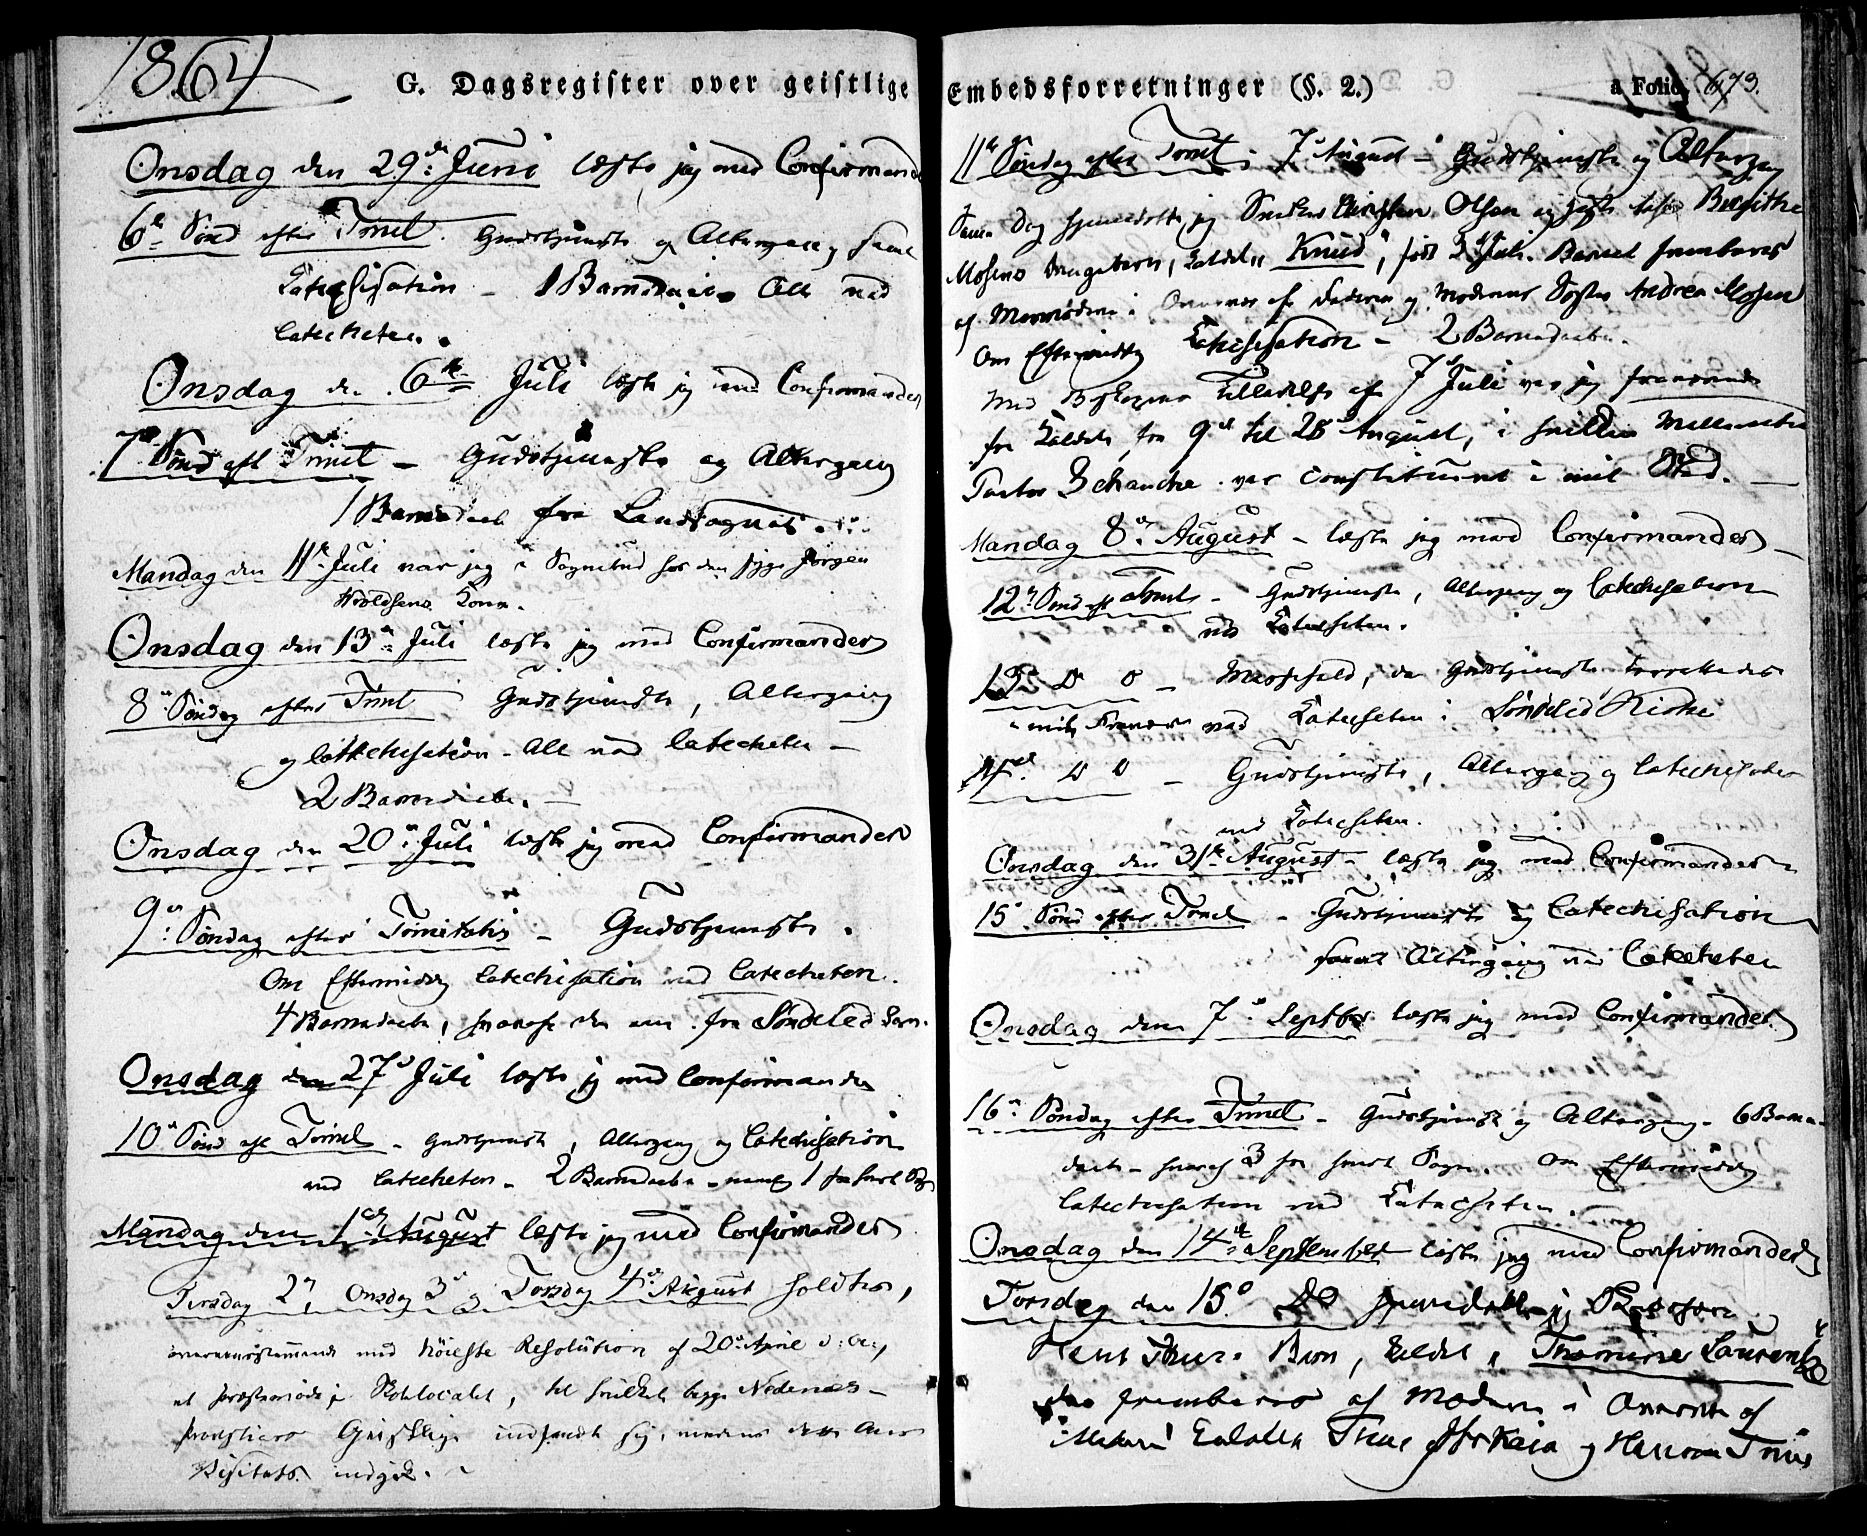 1864
G. Dagsregister over geistlige
Onsdag den 29de Juni læste jeg med Confirmand
6te Sönd efter Trinit. Gudstjeneste og Altergang samt
Catechisation - 1 Barnedaab Alt ved
Catecheten.
Onsdag den 6te Juli læste jeg med Confirmander
7de Sönd eft Trinit - Gudstjeneste og Altergang
1 Barnedaab fra Landsognet.
Mandag den 11te Juli var jeg i Sognebud hos den syge Jörgen
Kone.
Onsdag den 13de Juli læste jeg med Confirmander
8de Söndag efter Trinit Gudstjeneste, Altergang
og Catechisation - Alt ved Catecheten -
2 Barnedaab. -
Onsdag den 20de Juli læste jeg med Confirmander
9de Söndag efter Trinitatis - Gudstjeneste.
Om Eftermiddag Catechisation ved Catecheten.
4 Barnedaab, hvoraf den ene fra Söndeled
Onsdag den 27de Juli læste jeg med Confirmander
10de Sönd eft Trinit - Gudstjeneste, Altergang og Catechisation
ved Catecheten - 2 Barnedaab - 1 fra
Mandag den 1ste August læste jeg med Confirmander
Tirsdag 2den, Onsdag 3die og Torsdag 4de August holdtes,
overensstemmende med höieste Resolution af 20de April d: A:,
et Præstemöde i Skolelocalet, til hvilket begge Nedenæs-
Provstiers Geistlige indfandt sig,
indgik.
Embedsforretninger (§. 2.)
a Folio 673.
11te Söndag efter Trinit: 7de August - Gudstjeneste og Altergang
Samme Dag hjemmedöbte jeg Olsen og Birgithe
Mosens kaldet "Knud", född 3die Juli. Barnet frembares
af i Overvær af Faderen og Moderens Söster Andrea Mosen
Om Eftermiddag Katechisation - 2 Barnedaab.
Med Biskopens Tilladelse af 7de Juli var jeg fraværende
fra Kaldet, fra 9de til 28 August, i hvilken Mellemtid
Pastor Schancke var constitueret i mit Sted. -
Mandag 8de August - læste jeg med Confirmander -
12te Sönd eft Trinit - Gudstjeneste, Altergang og Catechisation
ved Katecheten.
13de Do Do - Messefald, da Gudstjeneste forrettedes
i mit Fravær ved Katecheten i Söndeled Kirke
14de Do Do - Gudstjeneste, Altergang og Catechisation
ved Katecheten.
Onsdag den 31te August - læste jeg med Confirmander -
15de Sönd efter Trinit - Gudstjeneste og Catechisation
samt Altergang ved Catecheten
Onsdag den 7de Septbr læste jeg med Confirmander.
16de Söndag efter Trinit - Gudstjeneste og Altergang - 6 Barne-
daab - hvoraf 3 fra Sogn. Om Eftermiddag
Catechisation ved Katecheten.
Onsdag den 14de September læste jeg med Confirmander
Torsdag den 15de Do hjemmedöbte jeg
Barn, kaldet "Thomine Laurentze"
frembares af Moderen i Overvær af
og Trine